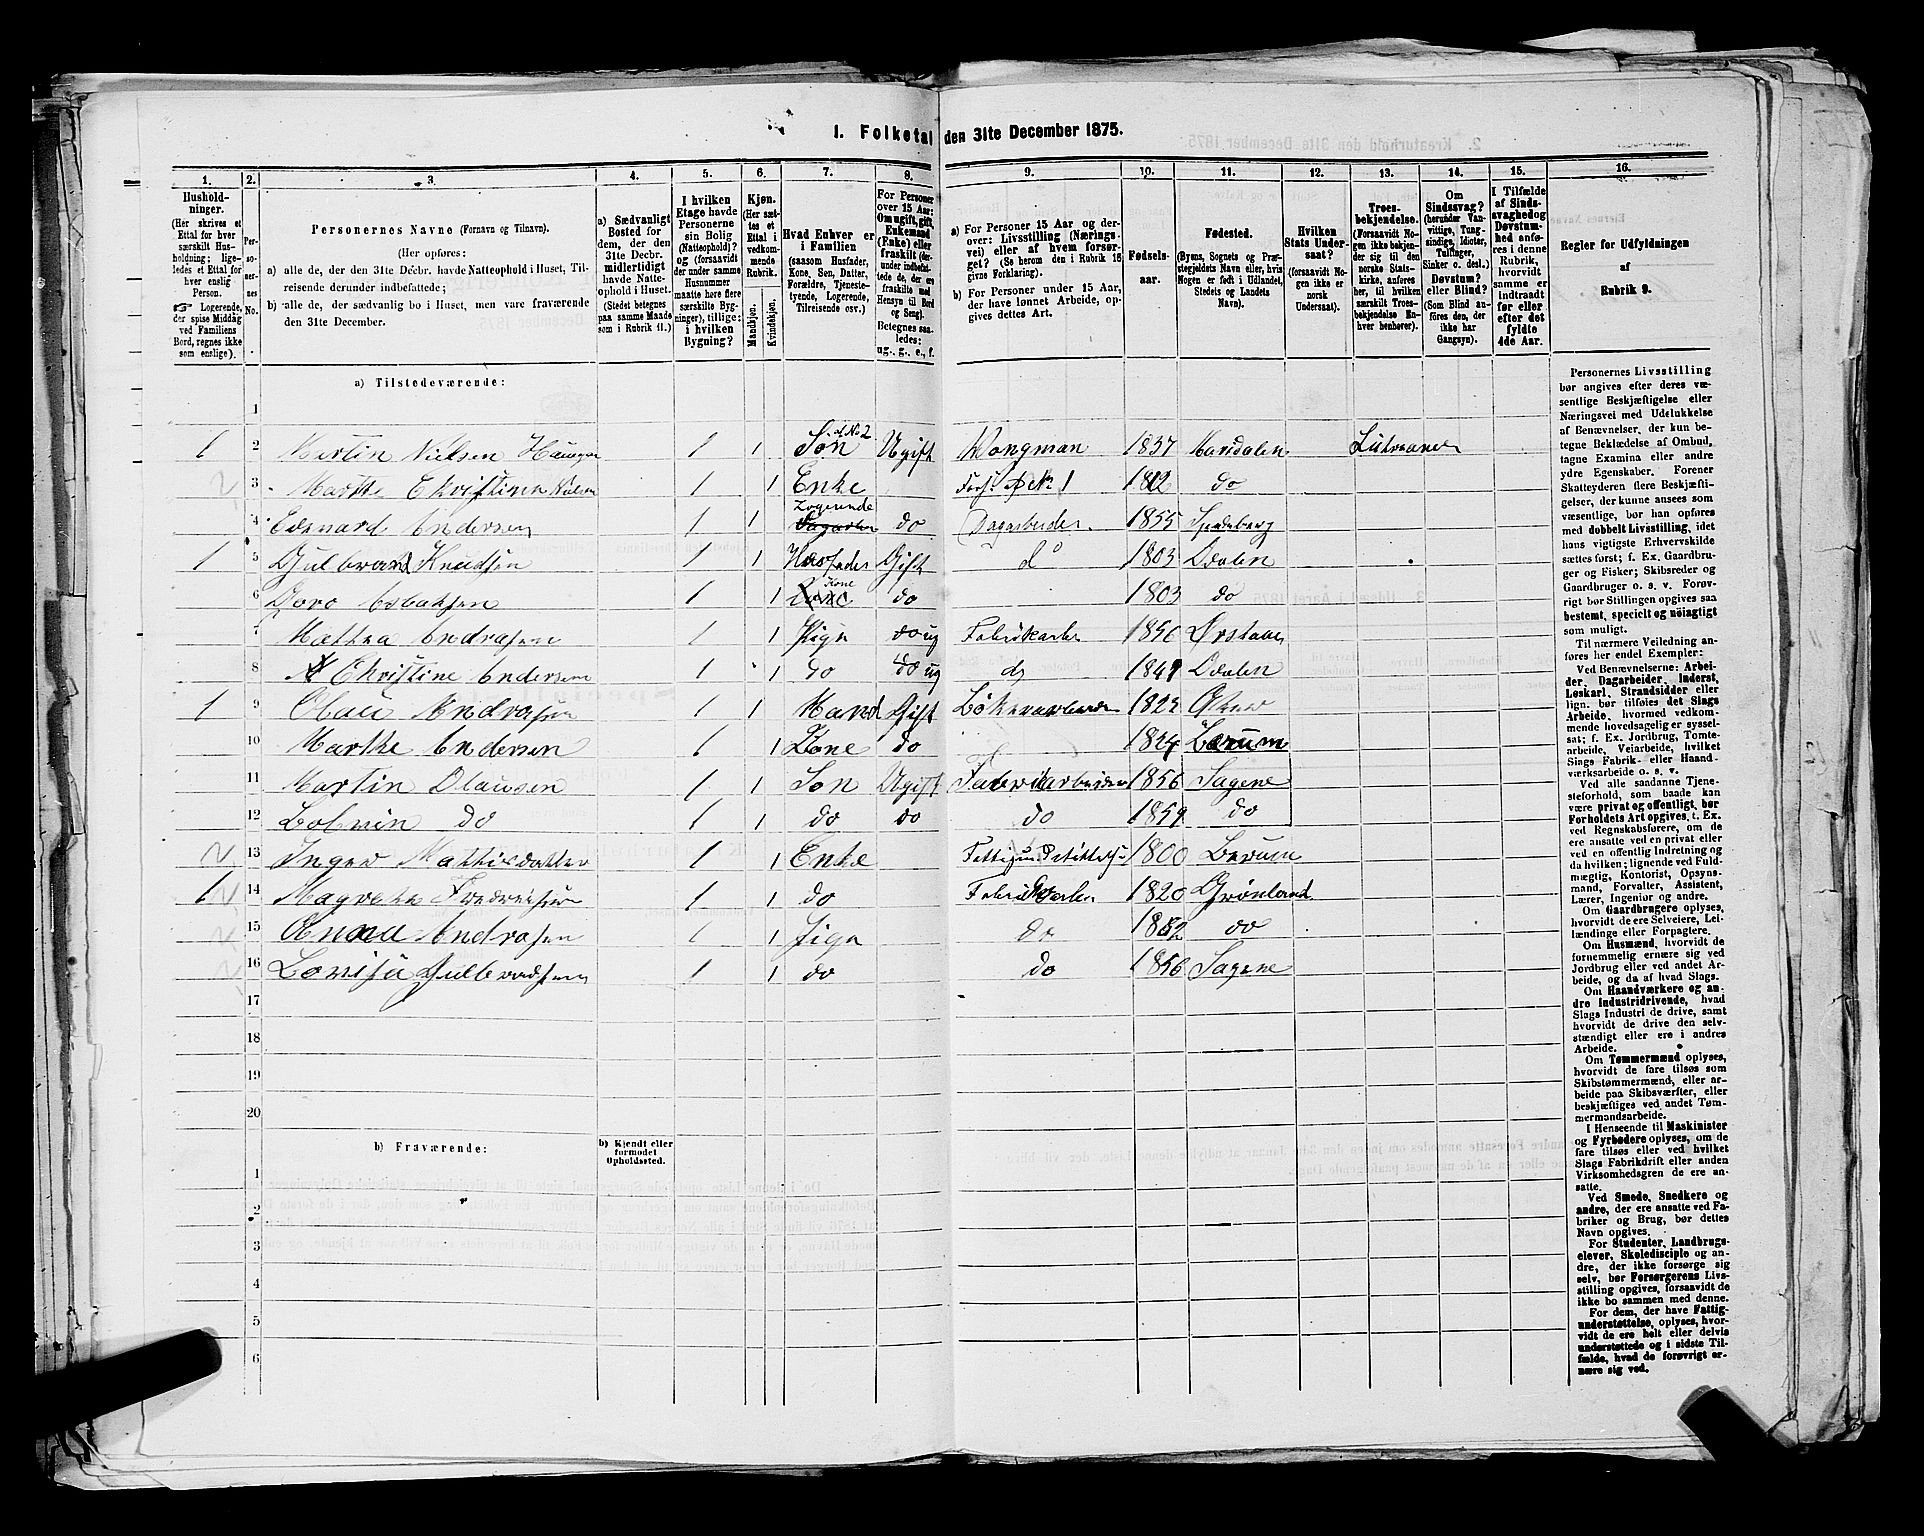 1. Folketal den 31te December 1875.
1. 2. 3. 4. 5. 6. 7. 8. 9. 10. 11. 12. 13. 14. 15. 16.
Husholdninger. (Her skrives et Ettal for hver særskilt Husholdning; ligeledes et Ettal for hver enslig Person. Logerende, der spise Middag ved Familiens Bord, regnes ikke som enslige).
Personernes No.
Personernes Navne (Fornavn og Tilnavn).
(Her opføres:
a) alle de, der den 31te Decbr. havde Natteophold i Huset, Tilreisende derunder indbefattede;
b) alle de, der sædvanlig bo i Huset, men vare fraværende den 31te December.
a) Sædvanligt Bosted for dem, der den 31te Decbr. midlertidigt havde Natteophold i Huset. (Stedet betegnes paa samme Maade som i Rubrik 11.)
I hvilken Etage havde Personerne sin Bolig (Natteophold)? og (forsaavidt der under samme Husnummer maatte høre flere særskilte Bygninger), tillige: i hvilken Bygning?
Kjøn. (Her sættes et Ettal i vedkommende Rubrik.
Mandkjøn. Kvindekjøn.
Hvad Enhver er i Familien (saasom Husfader, Kone, Søn, Datter, Forældre, Tjenestetyende, Logerende, Tilreisende osv.)
For Personer over 15 Aar: Om ugift, gift, Enkemand (Enke) eller fraskilt (derunder indbefattede de, der ere fraskilte med Hensyn til Bord og Seng). Betegnes saaledes: ug., g., e., f.
a) For Personer 15 Aar og derover: Livsstilling (Næringsvei) eller af hvem forsørget? (Se herom den i Rubrik 16 givne Forklaring).
b) For Personer under 15 Aar, der have lønnet Arbeide, opgives dettes Art.
Fødselsaar.
Fødested. (Byens, Sognets og Præstegjeldets Navn eller, hvis Nogen er født i Udlandet, Stedets og Landets Navn).
Hvilken Stats Undersaat? (forsaavidt Nogen ikke er norsk Undersaat).
Troesbekjendelse. (Forsaavidt Nogen ikke bekjender sig til den norske Statskirke, anføres her, til hvilken særskilt Troesbekjendelse Enhver henhører).
Om Sindssvag? (herunder Vanvittige, Tungsindige, Idioter, Tullinger, Sinker o. desl.) Døvstum? eller Blind? (Som Blind anføres den, der ikke har Gangsyn).
I Tilfælde af Sindssvaghed og Døvstumhed anføres i denne Rubrik, hvorvidt samme er Indtraadt før eller efter det fyldte 4de Aar.
Regler for Udfyldningen af Rubrik 9.
a) Tilstedeværende:
1
1 2 Martin Nielsen 1 1 Søn af No 2 Ugift 1837 Lutraaner
3 Marthe Christine Nielsen 1 1 Enke 1812 do
4 Edvard Andersen 1 1 Logerende do Dagarbeider 1855
1 5 Gulbrand Knudsen 1 1 Husfader Gift do 1803 Odalen
6 1 1 Kone do 1803 do
7 Mathea Andrasen 1 1 Pige do ug Fabrikarb 1850
8 Christine Andersen 1 1 do do ug do 1849 Odalen
1 9 Olaus Andrasen 1 1 Mand Gift Asker
10 Marthe Andersen 1 1 Kone do 1824 Bærum
11 Martin Olausen 1 1 Søn Ugift Fabrikarbeider 1856 Sagene
12 do 1 1 do do do 1859 do
13 Inger Mathisdatter 1 1 Enke 1800 Bærum
1 14 Magrethe Fredreksen 1 1 do Fabrikarbei 1820 Grønland
15 Anna Andrasen 1 1 Pige do 1852 do
16 Lovisa Gulbrandsen 1 1 do do 1856 Sagene
17
18
19
20
b) Fraværende:
b) Kjendt eller formodet Opholdssted.
1
2
3
4
5
6
Personernes Livsstilling
bør angives efter deres væ-
sentlige Beskjæftigelse eller
Næringsvei med Udelukkelse
af Benævnelser, der kun be-
tegne Beklædelse af Ombud,
tagne Examina eller andre
ydre Egenskaber. Forener
Skatteyderen flere Beskjæfti-
gelser, der kunne ansees som
væsentlige, bør han opføres
med dobbelt Livsstilling, idet
hans vigtigste Erhvervskilde
sættes først; f. Ex. Gaardbru-
ger og Fisker; Skibsreder og
Gaardbruger o. s. v. Forøv-
rigt bør Stillingen opgives saa
bestemt, specielt og nøiagtigt
som muligt.
Til nærmere Veiledning an-
føres her endel Exempler:
Ved Benævnelserne: Arbei-
der, Dagarbeider, Inderst,
Løskarl, Strandsidder eller
lign. bør tilføies det Slags
Arbeide, hvormed vedkom-
mende hovedsagelig er syssel-
sat; f. Ex. Jordbrug, Tomte-
arbeide, Veiarbeide, hvilket
Slags Fabrik- eller Haand-
værksarbeide o. s. v.
Ved alle saadanne Tjene-
steforhold, som baade kan
være privat og offentligt, bør
Forholdets Art opgives, t. Ex.
ved Regnskabsførere, om de
ere ansatte ved en privat eller
ved en offentlig Indretning og
da hvilken; lignende ved Fuld-
mægtig, Kontorist, Opsyns-
mand, Forvalter, Assistent,
Lærer, Ingeniør og andre.
Om Gaardbrugere oplyses,
hvorvidt de ere Selveiere, Lei-
lændinge eller Forpagtere.
Om Husmænd, hvorvidt de
fornemmelig ernære sig ved
Jordbrug eller ved andet Ar-
beide, og da af hvad Slags.
Om Haandværkere og an-
dre Industridrivende, hvad
Slags Industri de drive, samt
hvorvidt de drive den selv-
stændigt eller ere i andres
Arbeide.
Om Tømmermænd oplyses,
hvorvidt de fare tilsøs som
Skibstømmermænd, eller ar-
beide paa Skibsværfter, eller
beskjæftiges ved andet Tøm-
mermandsarbeide.
I Henseende til Maskinister
og Fyrbødere oplyses, om de
fare tilsøs eller ved hvilket
Slags Fabrikdrift eller anden
Virksomhedsgren de ere an-
satte.
Ved Smede, Snedkere og
andre, der ere ansatte ved Fa-
briker og Brug, bør dettes
Navn opgives.
For Studenter, Landbrugs-
elever, Skoledisciple og an-
dre, der ikke forsørge sig
selv, bør Forsørgerens Livs-
stilling opgives, forsaavidt de
ikke bo sammen med denne.
For dem, der have Fattig-
understøttelse, oplyses, hvor-
vidt de ere helt eller delvis
understøttede og i sidste Til-
fælde, hvad de forøvrigt er-
nære sig ved.